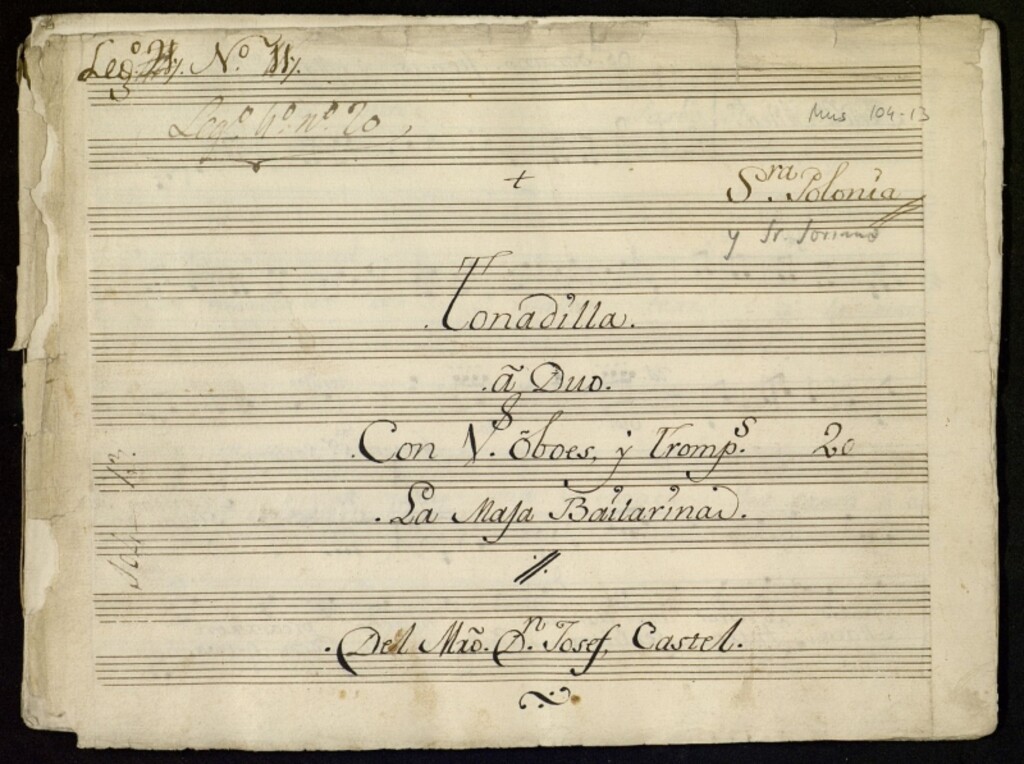 Leg.º 21. Nº 11.
Legº 6º nº 20,
Mus 104-13
+
S.ra Polonia
y Sr. Soriano
Tonadilla.
â Duo.
Con V.s õboes, y Tromp.s 20
La Maja Bailarina.
Del Mrõ. D.n Josef, Castel.